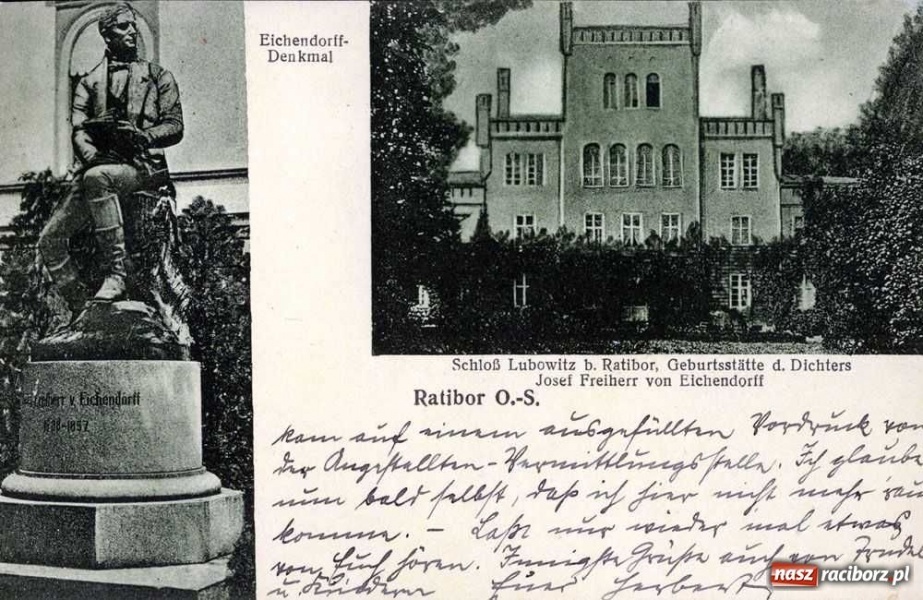 Eichendorff-
Denkmal
Freiherr v. Eichendorff
1788-1857
Schloß Lubowitz b. Ratibor, Geburtsstätte d. Dichters
Josef Freiherr von Eichendorff
Ratibor O.-S.
kam auf einem ausgefüllten Vordruck von
der Angestellten-Vermittlungsstelle. Ich glaube
nun bald selbst, daß ich hier nicht mehr
komme. – Laßt nur wieder mal etwas
von Euch hören. Innigste Grüße auch von
u. Kindern Euer Herbert
nasz raciborz.pl